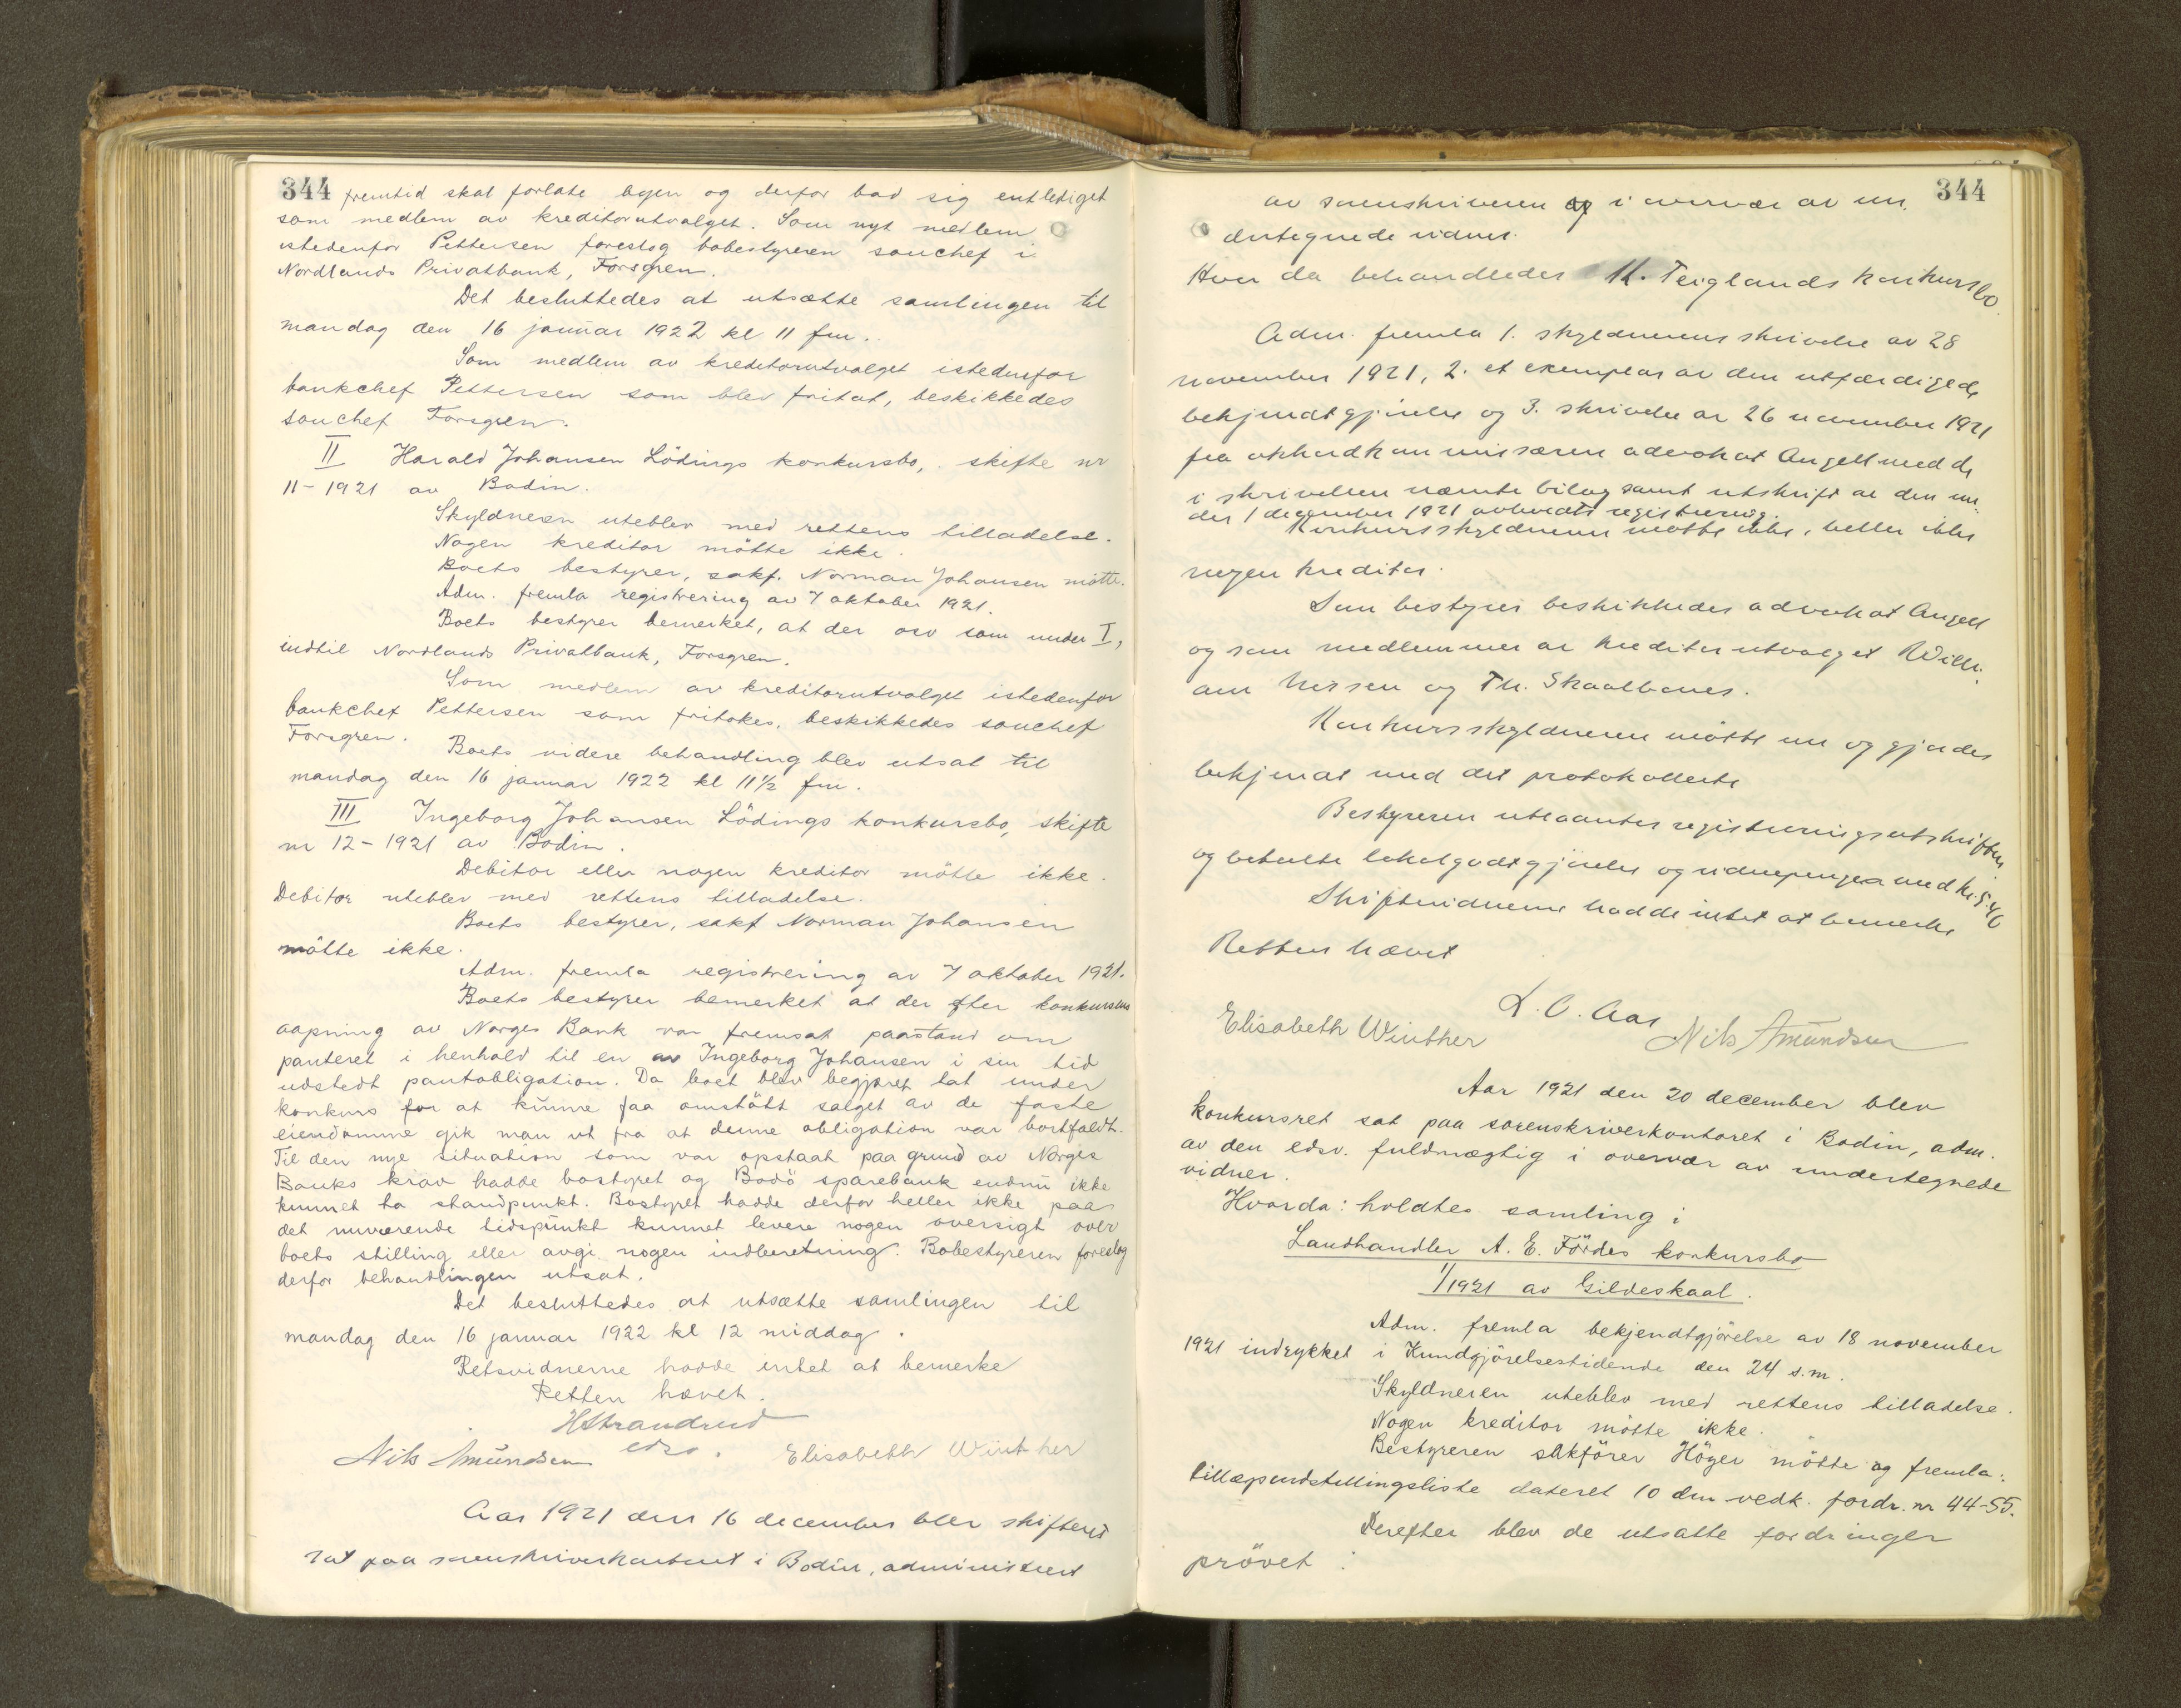 344
fremtid skal forlate byen og derfor bad sig entlediget
som medlem av kreditorutvalget. Som nyt medlem
istedenfor Pettersen foreslog bobestyreren souchef i
Nordlands Privatbank, Forsgren.
Det besluttedes at utsætte samlingen til
mandag den 16 januar 1922 kl 11 fm.
Som medlem av kreditorutvalget istedenfor
bankchef Pettersen som blev fritat, beskikkedes
souchef Forsgren.
II Harald Johansen Lödings konkursbo, skifte nr
11-1921 av Bodin.
Skyldneren uteblev med rettens tilladelse.
Nogen kreditor mötte ikke.
Boets bestyrer, sakf. Norman Johansen mötte.
Adm. fremla registrering av 7 oktober 1921.
Boets bestyrer bemerket, at der osv som under I,
indtil Nordlands Privatbank, Forsgren.
Som medlem av kreditorutvalget istedenfor
bankchef Pettersen som fritokes, beskikkedes souchef
Forsgren.
Boets videre behandling blev utsat til
mandag den 16 januar 1922 kl 11½ fm.
III Ingeborg Johansen Lödings konkursbo, skifte
nr 12-1921 av Bodin.
Debitor eller nogen kreditor mötte ikke.
Debitor uteblev med rettens tilladelse.
Boets bestyrer, sakf Norman Johansen
mötte ikke.
Adm. fremla registrering av 7 oktober 1921.
Boets bestyrer bemerket at der efter konkursens
aapning av Norges Bank var fremsat paastand om
panteret i henhold til en av Ingeborg Johansen i sin tid
udstedt pantobligation. Da boet blev begjæret tat under
konkurs for at kunne faa omstött salget av de faste
eiendomme gik man ut fra at denne obligation var bortfaldt.
Til den nye situation som var opstaat paa grund av Norges
Banks krav hadde bostyret og Bodö sparebank endnu ikke
kunnet ta standpunkt. Bostyret hadde derfor heller ikke paa
det nuværende tidspunkt kunnet levere nogen oversigt over
boets stilling eller avgi nogen indberetning. Bobestyreren foreslog
derfor behandlingen utsat.
Det besluttedes at utsætte samlingen til
mandag den 16 januar 1922 kl 12 middag.
Retsvidnerne hadde intet at bemerke
Retten hævet.
HStrandrud
edsv.
Nils Amundsen Elisabeth Winther
Aar 1921 den 16 december blev skifteret
sat paa sorenskriverkontoret i Bodin, administrert
344
av sorenskriveren og i overvær av un-
dertegnede vidner.
Hvor da behandledes K. Teiglands konkursbo.
Adm. fremla 1. skyldnerens skrivelse av 28
november 1921, 2. et exemplar av den utfærdigede
bekjendtgjörelse og 3. skrivelse av 26 november 1921
fra akkordkommissæren advokat Angell med de
i skrivelsen nævnte bilag samt utskrift av den un-
der 1 december 1921 avholdte registrering.
Konkursskyldneren mötte ikke, heller ikke
nogen kreditor.
Som bestyrer beskikkedes advokat Angell
og som medlemmer av kreditorutvalget Willi-
am Nissen og Th. Skaalbones.
Konkursskyldneren mötte nu og gjordes
bekjendt med det protokollerte
Bestyreren utlaantes registreringsutskriften
og betalte lokalgodtgjörelse og vidnepenger med kr. 5.40
Skiftevidnerne hadde intet at bemerke
Retten hævet
L. O. Aas
Elisabeth Winther Nils Amundsen
Aar 1921 den 20 december blev
konkursret sat paa sorenskriverkontoret i Bodin, adm.
av den edsv. fuldmægtig i overvær av undertegnede
vidner.
Hvorda: holdtes samling i
Landhandler A. E. Fördes konkursbo
1/1921 av Gildeskaal.
Adm. fremla bekjendtgjörelse av 18 november
1921 indrykket i Kundgjörelsestidende den 24 s.m.
Skyldneren uteblev med rettens tilladelse.
Nogen kreditor mötte ikke.
Bestyreren sakförer Höyer mötte og fremla:
tillægsindstillingsliste dateret 10 dm vedk. fordr. nr 44-55.
Derefter blev de utsatte fordringer
prövet: